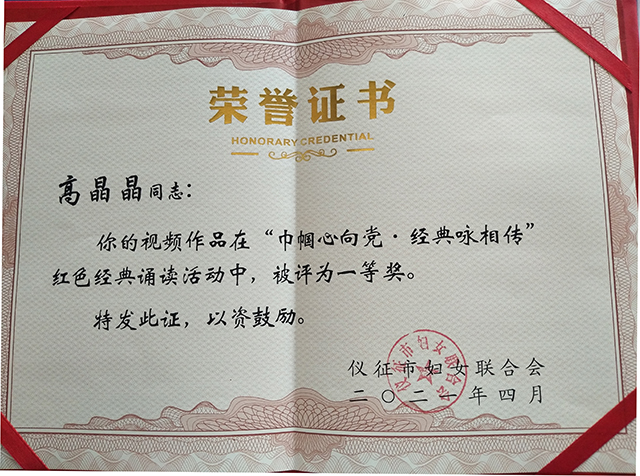 荣誉证书
HONORARY CREDENTIAL
高晶晶同志：
你的视频作品在“巾帼心向党·经典咏相传”
红色经典诵读活动中，被评为一等奖。
特发此证，以资鼓励。
仪征市妇女联合会
二〇二一年四月
仪征市妇女联合会